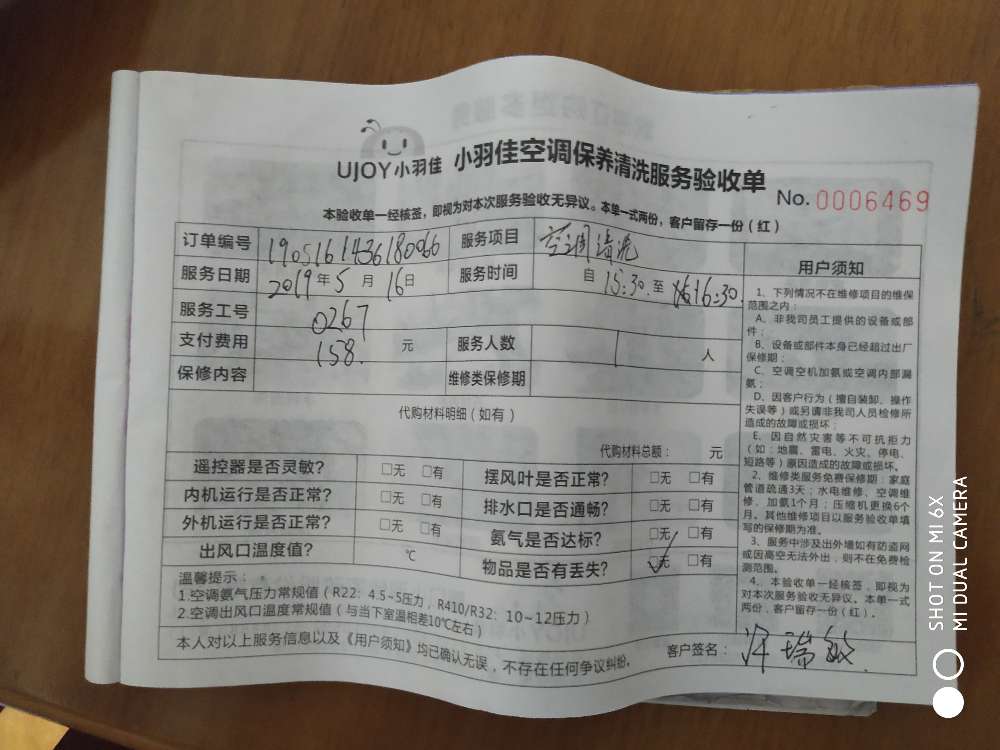 UJOY小羽佳 小羽佳空调保养清洗服务验收单
No. 0006469
本验收单一经核签,即视为对本次服务验收无异议。本单一式两份,客户留存一份(红)
订单编号 190516143618006 服务项目 空调清洗
服务日期 2019年5月16日 服务时间 自 15:30 至 16:30
服务工号 0267
支付费用 158. 元 服务人数 人
保修内容 维修类保修期
代购材料明细(如有)
代购材料总额: 元
遥控器是否灵敏? □无 □有 摆风叶是否正常? □无 □有
内机运行是否正常? □无 □有 排水口是否通畅? □无 □有
外机运行是否正常? □无 □有 氨气是否达标? □无 □有
出风口温度值? ℃ 物品是否有丢失? □无 □有
温馨提示:
1.空调氨气压力常规值(R22:4.5~5压力,R410/R32:10~12压力)
2.空调出风口温度常规值(与当下室温相差10℃左右)
本人对以上服务信息以及《用户须知》均已确认无误,不存在任何争议纠纷。
客户签名: 许瑞敏
用户须知
1、下列情况不在维修项目的维保
范围之内:
A、非我司员工提供的设备或部
件;
B、设备或部件本身已经超过出厂
保修期;
C、空调空机加氨或空调内部漏
氨;
D、因客户行为(擅自装卸、操作
失误等)或另请非我司人员检修所
造成的故障或损坏;
E、因自然灾害等不可抗拒力
(如:地震、雷电、火灾、停电、
短路等)原因造成的故障或损坏。
2、维修类服务免费保修期:家庭
管道疏通3天;水电维修、空调维
修、加氨1个月;压缩机更换6个
月。其他维修项目以服务验收单填
写的保修期为准。
3、服务中涉及出外墙如有防盗网
或因高空无法外出,则不在免费检
测范围。
4、本验收单一经核签,即视为
对本次服务验收无异议。本单一式
两份,客户留存一份(红)。
SHOT ON MI 6X
MI DUAL CAMERA